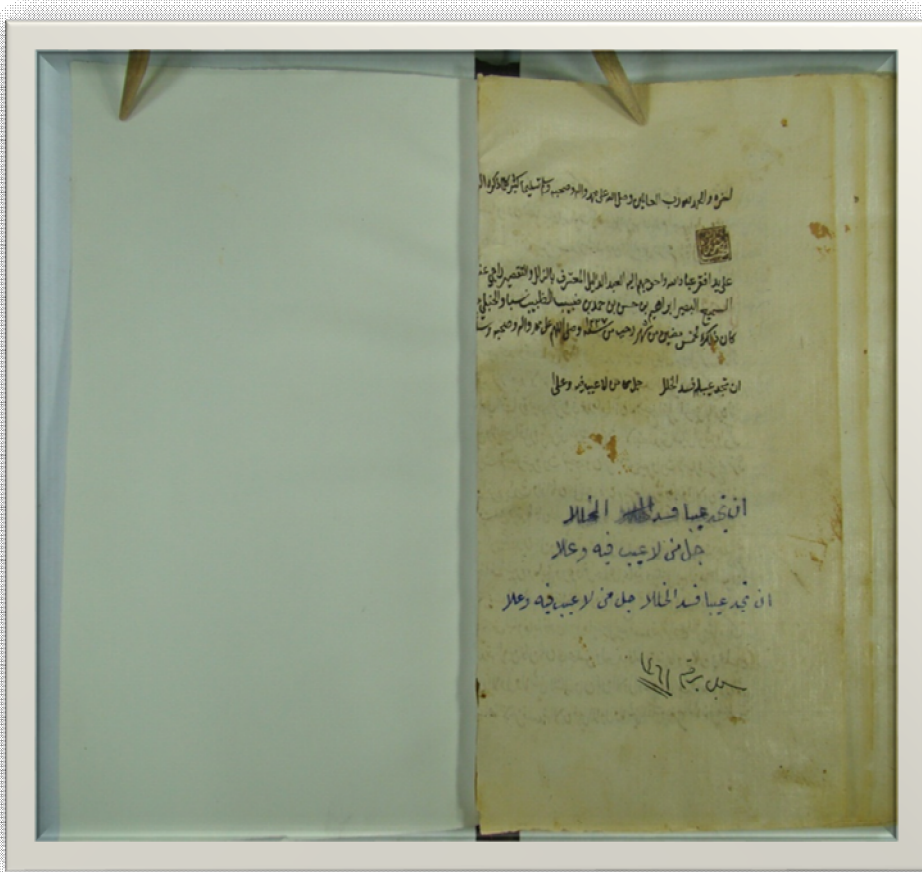 لغيره والحمد لله رب العالمين وصلى الله على محمد واله وصحبه وسلم تسليما كثيرا
على يد افقر عباد الله واحوجهم اليه العبد الذليل المعترف بالزلل والتقصير راجي عفو
السميع البصير ابراهيم بن حسن بن حمد بن نسبا والحنبلي
كان ذلك لخمس مضين من شهر رجب من وصلى الله على محمد واله وصحبه
ان تجد عيبا فسد الخلل جل من لا عيب فيه وعلا
ان تجد عيبا فسد الخللا
جل من لا عيب فيه وعلا
ان تجد عيبا فسد الخللا جل من لا عيب فيه وعلا
سجل برقم